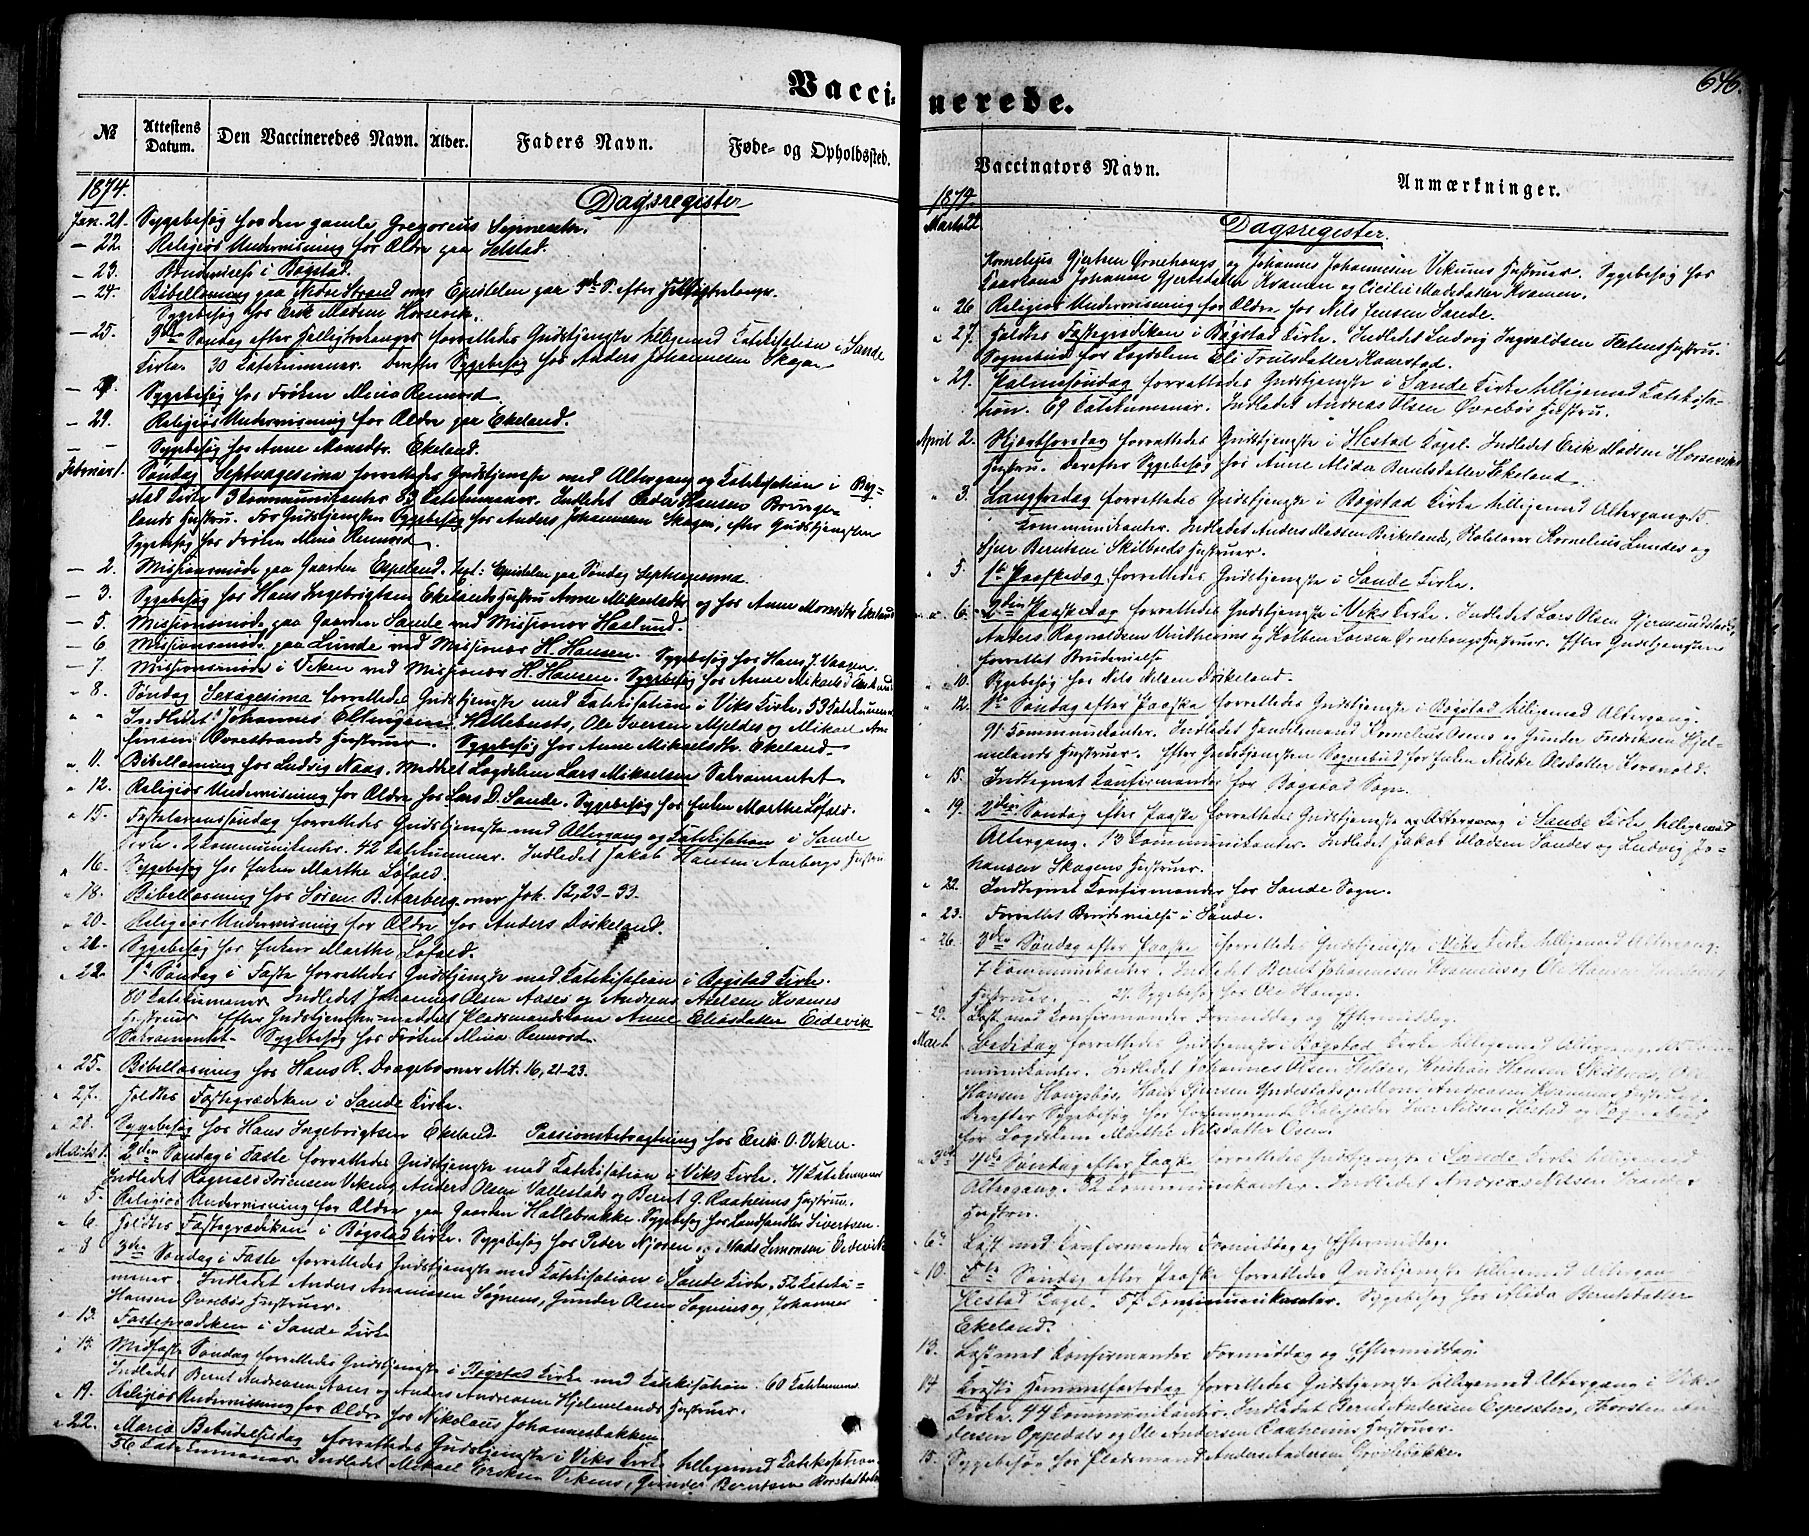 Vacci-
№ Attestens Datum. Den Vaccineredes Navn. Alder. Faders Navn. Føde- og Opholdssted.
1874. Dagsregister
Jan. 21. Sygebesøg hos den gamle Gregorius
— 22. Religiøs Undervisning for Ældre paa Selstad.
— 23. Brudevielse i Bøgstad.
— 24. Bibellæsning paa Indre Strand over Epistelen paa 3de S. efter Helligtrekonger.
Sygebesøg hos Erik Madsen Horsevik.
— 25. 3die Søndag efter Helligtrekonger forrettedes Gudstjeneste tilligemed Katekisation i Sande
Kirke. 30 Katekumener. Derefter Sygebesøg hos Anders Johannesen Skogen
Sygebesøg hos Frøken Mina Renord.
— 29. Religiøs Undervisning for Ældre paa Ekeland.
— Sygebesøg hos Anne Monsdtr. Ekeland.
Februar 1. Søndag Septuagesima forrettedes Gudstjeneste med Altergang og Katekisation i Bøg-
stad Kirke 3 Kommunikanter 83 Katekumener. Indledet Peder Hansens Bringe-
lands Hustru. For Gudstjenesten Sygebesøg hos Anders Johannesen Skogen, efter Gudstjenesten
Sygebesøg hos Frøken Mina Renord.
— 2. Missionsmøde paa Gaarden Espeland. Text: Epistelen paa Søndag Septuagesima.
— 3. Sygebesøg hos Hans Ingebrigtsen Ekelands Hustru Anne Mikaelsdtr. og hos Anne Monsdtr. Ekeland
— 5. Missionsmøde paa Gaarden Sande ved Missionær Haslund.
— 6. Missionsmøde paa Lunde ved Missionær H. Hansen. Sygebesøg hos Hans J. Vaagen.
— 7. Missionsmøde i Viken ved Missionær H. Hansen. Sygebesøg hos Anne Mikaelsd. Ekeland
" 8. Søndag Sexagesima forrettedes Gudstjeneste med Katekisation i Viks Kirke. 53 Katekumener
" " Indledet Johannes Hallebusts, Ole Iversen Mjeldes og Mikael
Jensen Øvrestrands Hustruer. Sygebesøg hos Anne Mikaelsdtr. Ekeland.
" 11. Bibellæsning hos Ludvig Naas. Meddelt Lægdslem Lars Mikaelsen Sakramentet.
" 12. Religiøs Undervisning for Ældre hos Lars D. Sande. Sygebesøg hos Enken Marthe Løfald.
" 15. Fastelavnssøndag forrettedes Gudstjeneste med Altergang og Katekisation i Sande
Kirke. 2 Kommunikanter. 42 Katekumener. Indledet Jakob Hansen Aarbergs Hustru
" 16. Sygebesøg hos Enken Marthe Løfald.
" 18. Bibellæsning hos Søren B. Aarberg over Joh. 12, 23–33.
" 20. Religiøs Undervisning for Ældre hos Anders Døskeland.
" 21. Sygebesøg hos Enken Marthe Løfald.
" 22. 1ste Søndag i Faste forrettedes Gudstjeneste med Katekisation i Bøgstad Kirke.
80 Katekumener. Indledet Johannes Olsen Aases og Andreas Axelsen Kvames
Hustruer. Efter Gudstjenesten meddelt Pladsmandskone Anne Eliasdatter Eidevik
Sakramentet. Sygebesøg hos Frøken Mina Renord.
" 25. Bibellæsning hos Hans R. Dragebø over Mt. 16, 21-23.
" 27. Holdtes Fasteprædiken i Sande Kirke.
" 28. Sygebesøg hos Hans Ingebrigtsen Ekeland. Passionsbetragtning hos Erik O. Viken.
Marts 1. 2den Søndag i Faste forrettedes Gudstjeneste med Katekisation i Viks Kirke. 71 Katekumener
Indledet Rognald Sørensen Vikens, Anders Olsen Vallestads og Bernt G. Raaheims Hustruer.
" 5. Religiøs Undervisning for Ældre paa Gaarden Hallebrække. Sygebesøg hos Landhandler Sivertsen.
" 6. Holdtes Fasteprædiken i Bøgstad Kirke. Sygebesøg hos Peder Njøsen og Mads Simonsen Eidevik
" 8 3die Søndag i Faste forrettedes Gudstjeneste med Katekisation i Sande Kirke. 52 Kateku-
mener. Indledet Anders Ananiassen Sognens, Gunder Olsens Sognens og Johannes
Hansen Øvrebøs Hustruer.
" 13. Fasteprædiken i Sande Kirke
" 15. Midfaste Søndag forrettedes Gudstjeneste i Bøgstad Kirke med Katekisation. 60 Katekumener
Indledet Bernt Andreasen Aases og Anders Andreasen Hjelmelands Hustruer.
" 19. Religiøs Undervisning for Ældre hos Nikolaus Johannesbakken
" 22. Mariæ Bebudelsesdag forrettedes Gudstjeneste i Viks Kirke tilligemed Katekisation
56 Katekumener. Indledet Mikael Eriksen Vikens, Gunder Berntsen
646.
nerede.
Vaccinators Navn. Anmærkninger.
1874 Dagsregister.
Marts 22. Kornelius Gjertsen Ørnehaugs og Johannes Johannesen Vikums Hustruer. Sygebesøg hos
Johanne Gjertsdatter Kvamen og Cicilie Madsdatter Kvamen.
" 26 Religiøs Undervisning for Ældre hos Nils Jensen Sande.
" 27. Holdtes Fasteprædiken i Bøgstad Kirke. Indledet Ludvig Ingvaldsen Fletens Hustru.
Sognebud for Lægdslem Eli
" 29. Palmesøndag forrettedes Gudstjeneste i Sande Kirke tilligemed Katekisa-
tion. 69 Katekumener. Indledet Andreas Olsen Øvrebøs Hustru.
April 2. Skjærthorsdag forrettedes Gudstjeneste i Hestad Capel. Indledet Erik Madsen Horseviks
Hustru. Derefter Sygebesøg hos Anne Alida Berntsdatter Ekeland.
" 3. Langfredag forrettedes Gudstjeneste i Bøgstad Kirke tilligemed Altergang.
Kommunikanter. Indledet Anders Matsen Birkeland, Kornelius Lundes og
Sjur Berntsen Skilbreds Hustruer.
" 5. 1ste Paaskedag forrettedes Gudstjeneste i Sande Kirke.
" 6. 2den Paaskedag forrettedes Gudstjeneste i Viks Kirke. Indledet Lars Olsen Gjermundstads,
Anders Rognaldsen Vindheims og Kolben Larsen Ørnehaugs Hustruer. Efter Gudstjenesten
forrettet Brudevielse
" 10. Sygebesøg hos Nils Nilsen Døskeland.
" 12. 1ste Søndag efter Paaske forrettedes Gudstjeneste i Bøgstad tilligemed Altergang.
91 Kommunikanter. Indledet Handelsmand Kornelius Osens og Gunder Fredriksen Hjel-
melands Hustruer. Efter Gudstjenesten Sognebud for Enken Nilske Olsdatter
" 15. Indtegnet Konfirmander for Bøgstad Sogn.
" 19. 2den Søndag efter Paaske forrettedes Gudstjeneste i Sande Kirke tilligemed
Altergang. 13 Kommunikanter. Indledet Jakob Madsen Sandes og Ludvig Jo-
hansen Skogens Hustruer.
" 22. Indtegnet Konfirmander for Sande Sogn.
" 23. Forrettet Brudevielse i Sande.
" 26. 3die Søndag efter Paaske forrettedes Gudstjeneste i Viks Kirke tilligemed Altergang.
7 Kommunikanter. Indledet Bernt Johannesen Kvammens og Ole Hansen
Hustruer. — 27. Sygebesøg hos Ole Haugs.
— 29. Læst med Konfirmander Formiddag og Eftermiddag.
Mai 1. Bededag forrettedes Gudstjeneste i Bøgstad Kirke tilligemed Altergang. Kom-
munikanter. Indledet Johannes Olsen Helles, Kristian Hansen
Hansen Haugsbøs, Hans Mons Andreasen Kvammens Hustruer.
Derefter Sygebesøg hos Iver Nilsen Hestad og
for Lægdslem Marthe Nilsdatter Osen.
" 3die 4de Søndag efter Paaske forrettedes Gudstjeneste i Sande Kirke tilligemed
Altergang. 32 Kommunikanter. Indledet Andreas Nilsen
Hustru.
" 6te Læst med Konfirmander Formiddag og Eftermiddag.
" 10. 5te Søndag efter Paaske forrettedes Gudstjeneste tilligemed Altergang
Hestad Capel. 57 Kommunikanter. Sygebesøg hos Alida Berntsdatter
Ekeland.
13. Læst med Konfirmander Formiddag og Eftermiddag.
14 Kristi Himmelfartsdag forrettedes Gudstjeneste tilligemed Altergang i Viks
Kirke. 44 Kommunikanter. Indledet Bernt Andersen Espesæters, Thorsten An-
dersen Oppedals og Ole Andersen Raaheims Hustruer.
15. Sygebesøg hos Pladsmand Anders Andersen